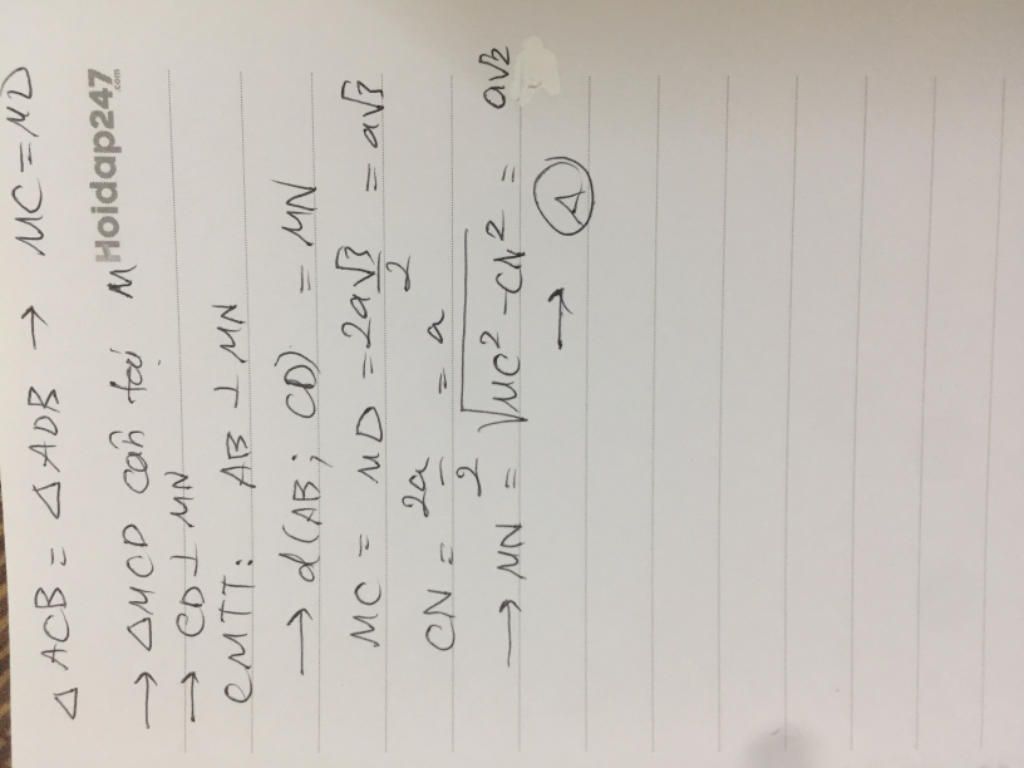 Δ ACB = Δ ADB → MC = MD
→ ΔMCD cân tại M
Hoidap247
.com
→ CD ⊥ MN
CMTT: AB ⊥ MN
→ d(AB; CD) = MN
MC = MD = 2a√3/2 = a√3
CN = 2a/2 = a
→ MN = √MC² - CN² = a√2
→ A